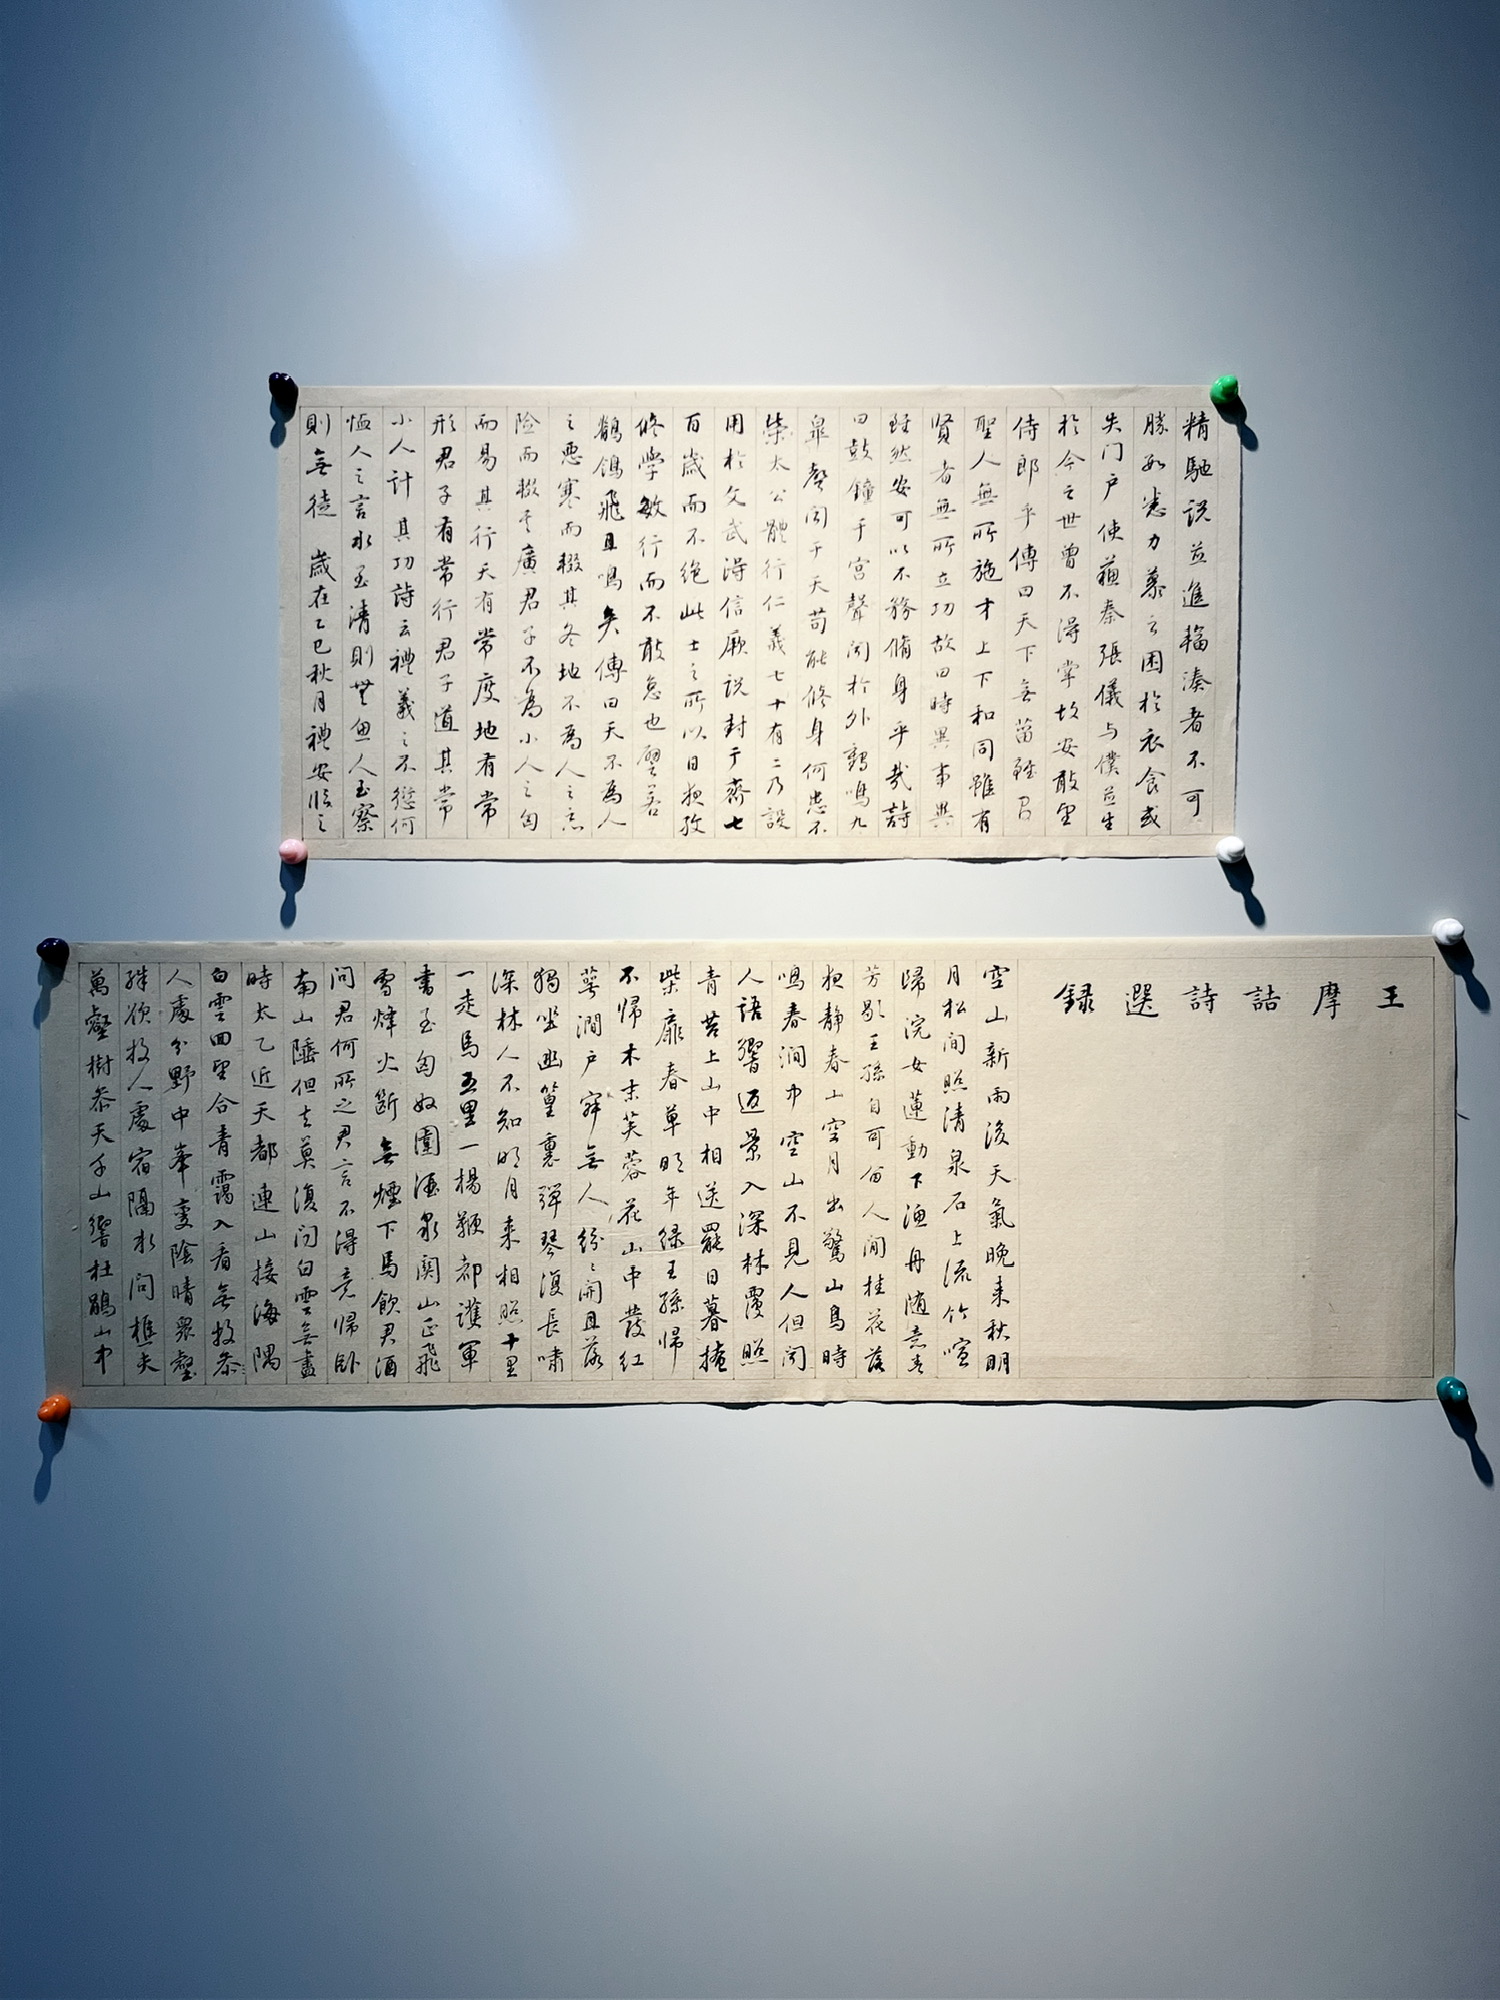 精馳説並進輻湊者不可
勝數悉力慕之困於衣食或
失门户使蘇秦張儀与僕並生
於今之世曾不得掌故安敢望
侍郎乎傳曰天下無菑雖有
聖人無所施才上下和同雖有
賢者無所立功故曰時異事異
雖然安可以不務脩身乎哉詩
曰鼓鐘于宮聲闻於外鶴鳴九
皐聲闻于天苟能修身何患不
榮太公體行仁義七十有二乃設
用於文武得信厥说封于齊七
百歲而不绝此士之所以日夜孜
修學敏行而不敢怠也譬若
鶺鴒飛且鳴矣傳曰天不為人
之惡寒而輟其冬地不為人之惡
险而輟其廣君子不為小人之匈
而易其行天有常度地有常
形君子有常行君子道其常
小人计其功詩云禮義之不愆何
恤人之言水至清則無魚人至察
則無徒 歲在乙巳秋月禮安臨之
王摩詰詩選録
空山新雨後天氣晚来秋明
月松间照清泉石上流竹喧
歸浣女蓮動下漁舟随意春
芳歇王孫自可留人闲桂花落
夜静春山空月出驚山鳥時
鳴春澗中空山不見人但闻
人語響返景入深林覆照
青苔上山中相送罷日暮掩
柴扉春草明年绿王孫歸
不歸木末芙蓉花山中發红
萼澗户寂無人纷々開且落
獨坐幽篁裏弹琴復長嘯
深林人不知明月来相照十里
一走馬五里一揚鞭都護軍
書至匈奴圍酒泉関山正飛
雪烽火斷無煙下馬飲君酒
问君何所之君言不得意歸卧
南山陲但去莫復问白雲無盡
時太乙近天都連山接海隅
白雲回望合青靄入看無投
人處分野中峯變陰晴衆壑
殊欲投人處宿隔水问樵夫
萬壑樹参天千山響杜鵑山中